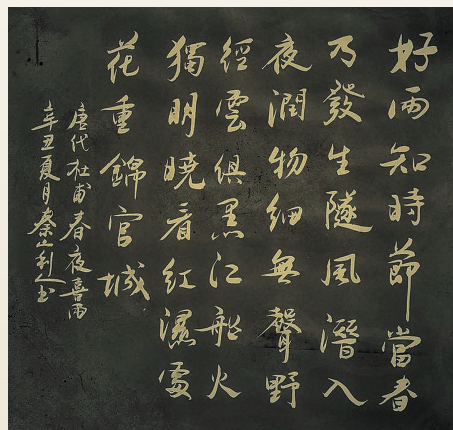 好雨知時節當春
乃發生隧風潛入
夜潤物細無聲野
經雲俱黑江船火
獨明曉看紅濕處
花重錦官城
唐代杜甫春夜喜雨
辛丑夏月秦山利人书